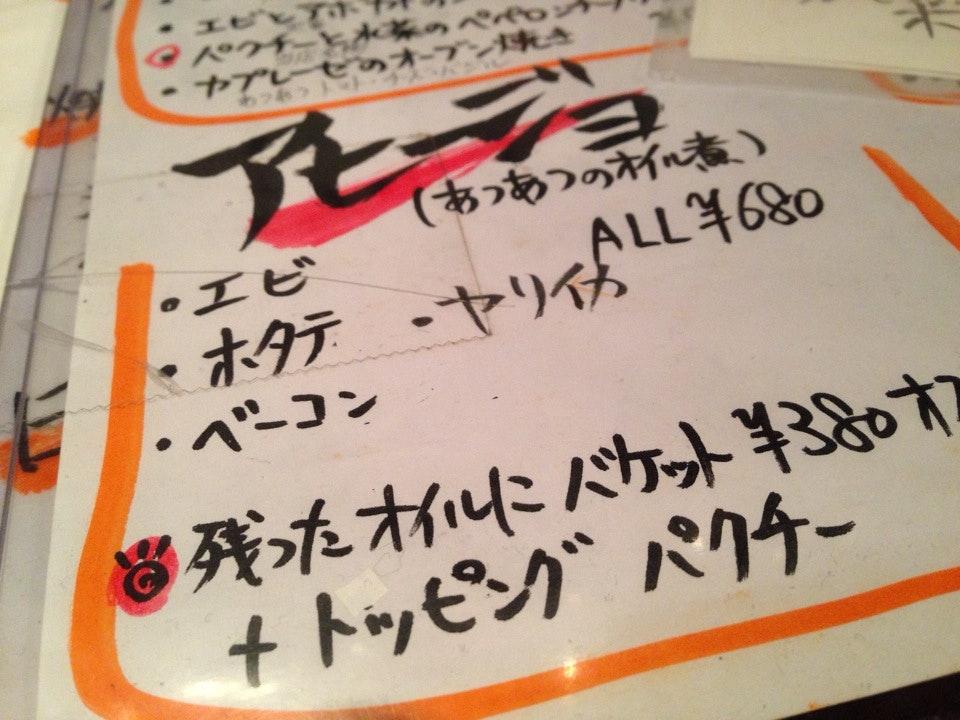 ・エビとアボカドの
パクチーと水菜のペペロンチーノ
・カプレーゼのオーブン焼き
アヒージョ
(あつあつのオイル煮)
ALL ¥680
・エビ
・ホタテ ・ヤリイカ
・ベーコン
残ったオイルにバケット ¥380 オス
+トッピング パクチー